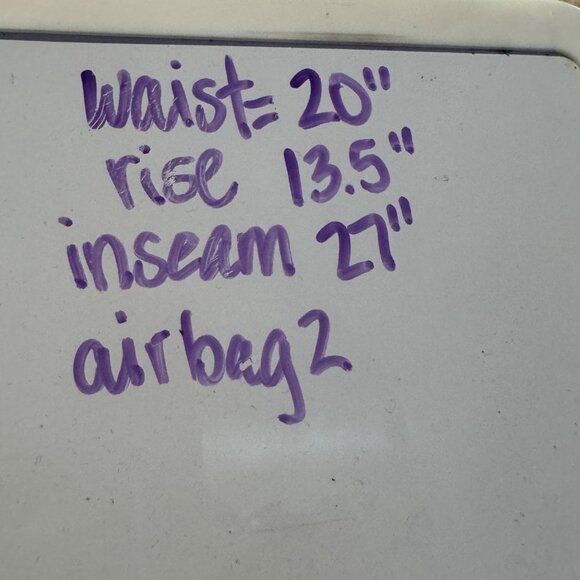 waist= 20"
rise 13.5"
inseam 27"
airbag2